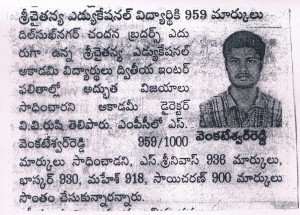 శ్రీచైతన్య ఎడ్యుకేషనల్ విద్యార్థికి 959 మార్కులు
దిల్‌సుఖ్‌నగర్ చందన బ్రదర్స్ ఎదు
రుగా ఉన్న శ్రీచైతన్య ఎడ్యుకేషనల్
అకాడమీ విద్యార్థులు ద్వితీయ ఇంటర్
ఫలితాల్లో అద్భుత విజయాలు
సాధించారని అకాడమీ డైరెక్టర్
వి.వి.రుషి తెలిపారు. ఎంపీసీలో ఎస్.
వెంకటేశ్వర్‌రెడ్డి 959/1000
వెంకటేశ్వర్‌రెడ్డి
మార్కులు సాధించాడని, ఎస్.శ్రీనివాస్ 936 మార్కులు,
భాస్కర్ 930, మహేశ్ 918, సాయిచరణ్ 900 మార్కులు
సొంతం చేసుకున్నారన్నారు.